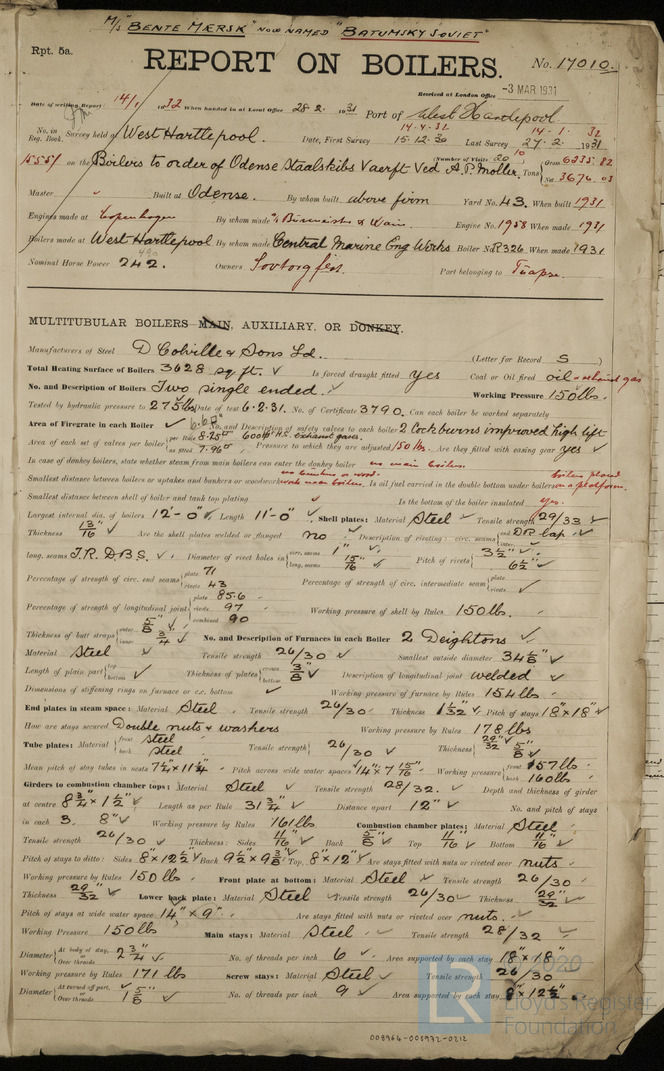 M/S "BENTE MÆRSK" NOW NAMED "BATUMSKY SOVIET"
Rpt. 5a.
REPORT ON BOILERS.
No. 17010.
Received at London Office -3 MAR 1931
Date of writing Report 14/1 1932 When handed in at Local Office 28.2. 1931 Port of West Hartlepool
14.4.31 14.1.32
No. in Reg. Book. Survey held at West Hartlepool. Date, First Survey 15.12.30 Last Survey 27.2. 1931
(Number of Visits 20
15551 on the Boilers to order of Odense Staalskibs Vaerft Ved A.P. Moller. Tons { Gross 6235.82 Net 3676.03
Master Built at Odense. By whom built above firm Yard No. 43. When built 1931
Engines made at Copenhagen By whom made Burmeister & Wain. Engine No. 1958 When made 1931
Boilers made at West Hartlepool By whom made Central Marine Eng Works Boiler No. R326. When made 1931
Nominal Horse Power 242. Owners Sovtorgflot. Port belonging to Tuapse.
MULTITUBULAR BOILERS MAIN, AUXILIARY, OR DONKEY.
Manufacturers of Steel D Colville & Sons Ld. (Letter for Record S )
Total Heating Surface of Boilers 3628 sq. ft. ✓ Is forced draught fitted yes Coal or Oil fired oil & exhaust gas
No. and Description of Boilers Two single ended. ✓ Working Pressure 150 lbs.
Tested by hydraulic pressure to 275 lbs Date of test 6.2.31. No. of Certificate 3790. Can each boiler be worked separately
Area of Firegrate in each Boiler ✓ No. and Description of safety valves to each boiler 2 Cockburns improved high lift
Area of each set of valves per boiler { per Rule 8.25 as fitted 7.96 Pressure to which they are adjusted 150 lbs. Are they fitted with easing gear yes ✓
In case of donkey boilers, state whether steam from main boilers can enter the donkey boiler no main boilers.
Smallest distance between boilers or uptakes and bunkers or woodwork Is oil fuel carried in the double bottom under boilers boilers placed on a platform.
Smallest distance between shell of boiler and tank top plating ✓ Is the bottom of the boiler insulated yes.
Largest internal dia. of boilers 12'-0" ✓ Length 11'-0" ✓ Shell plates: Material Steel ✓ Tensile strength 29/33 ✓
Thickness 13/16" ✓ Are the shell plates welded or flanged no ✓ Description of riveting: circ. seams { end DR lap. ✓ inter.
long. seams T.R. D.B.S. ✓ Diameter of rivet holes in { circ. seams 1" ✓ long. seams 15/16 ✓ Pitch of rivets { 3½" ✓ 6½" ✓
Percentage of strength of circ. end seams { plate 71 rivets 43 Percentage of strength of circ. intermediate seam { plate rivets ✓
Percentage of strength of longitudinal joint { plate 85.6 rivets 97 combined 90 Working pressure of shell by Rules 150 lbs.
Thickness of butt straps { outer 5/8 ✓ inner 3/4 ✓ No. and Description of Furnaces in each Boiler 2 Deightons ✓
Material Steel ✓ Tensile strength 26/30 ✓ Smallest outside diameter 34 5/8" ✓
Length of plain part { top bottom ✓ Thickness of plates { crown bottom 3/8" ✓ Description of longitudinal joint welded ✓
Dimensions of stiffening rings on furnace or c.c. bottom ✓ Working pressure of furnace by Rules 154 lbs
End plates in steam space: Material Steel ✓ Tensile strength 26/30 ✓ Thickness 1 1/32" ✓ Pitch of stays 18" x 18" ✓
How are stays secured Double nuts & washers Working pressure by Rules 178 lbs
Tube plates: Material { front steel back steel Tensile strength { 26/30 ✓ Thickness { 29/32" 5/8" ✓
Mean pitch of stay tubes in nests 7½" x 11¼" ✓ Pitch across wide water spaces 14" x 7 15/16" ✓ Working pressure { front 157 lbs back 160 lbs
Girders to combustion chamber tops: Material Steel ✓ Tensile strength 28/32. ✓ Depth and thickness of girder
at centre 8¾" x 1½" ✓ Length as per Rule 31¾" ✓ Distance apart 12" ✓ No. and pitch of stays
in each 3. 8" ✓ Working pressure by Rules 161 lbs Combustion chamber plates: Material Steel
Tensile strength 26/30 ✓ Thickness: Sides 11/16" ✓ Back 5/8" ✓ Top 11/16" ✓ Bottom 11/16" ✓
Pitch of stays to ditto: Sides 8" x 12½" ✓ Back 9½" x 9⅜" ✓ Top 8" x 12" ✓ Are stays fitted with nuts or riveted over nuts.
Working pressure by Rules 150 lbs Front plate at bottom: Material Steel ✓ Tensile strength 26/30
Thickness 29/32" ✓ Lower back plate: Material Steel ✓ Tensile strength 26/30 ✓ Thickness 29/32" ✓
Pitch of stays at wide water space 14" x 9" Are stays fitted with nuts or riveted over nuts. ✓
Working Pressure 150 lbs Main stays: Material Steel. ✓ Tensile strength 28/32 ✓
Diameter { At body of stay, or Over threads 2¾" ✓ No. of threads per inch 6 ✓ Area supported by each stay 18" x 18"
Working pressure by Rules 171 lbs Screw stays: Material Steel ✓ Tensile strength 26/30
Diameter { At turned off part, or Over threads 1⅝" ✓ No. of threads per inch 9 ✓ Area supported by each stay 8" x 12½"
© 2020
LR
Lloyd's Register
Foundation
008964-008972-0212